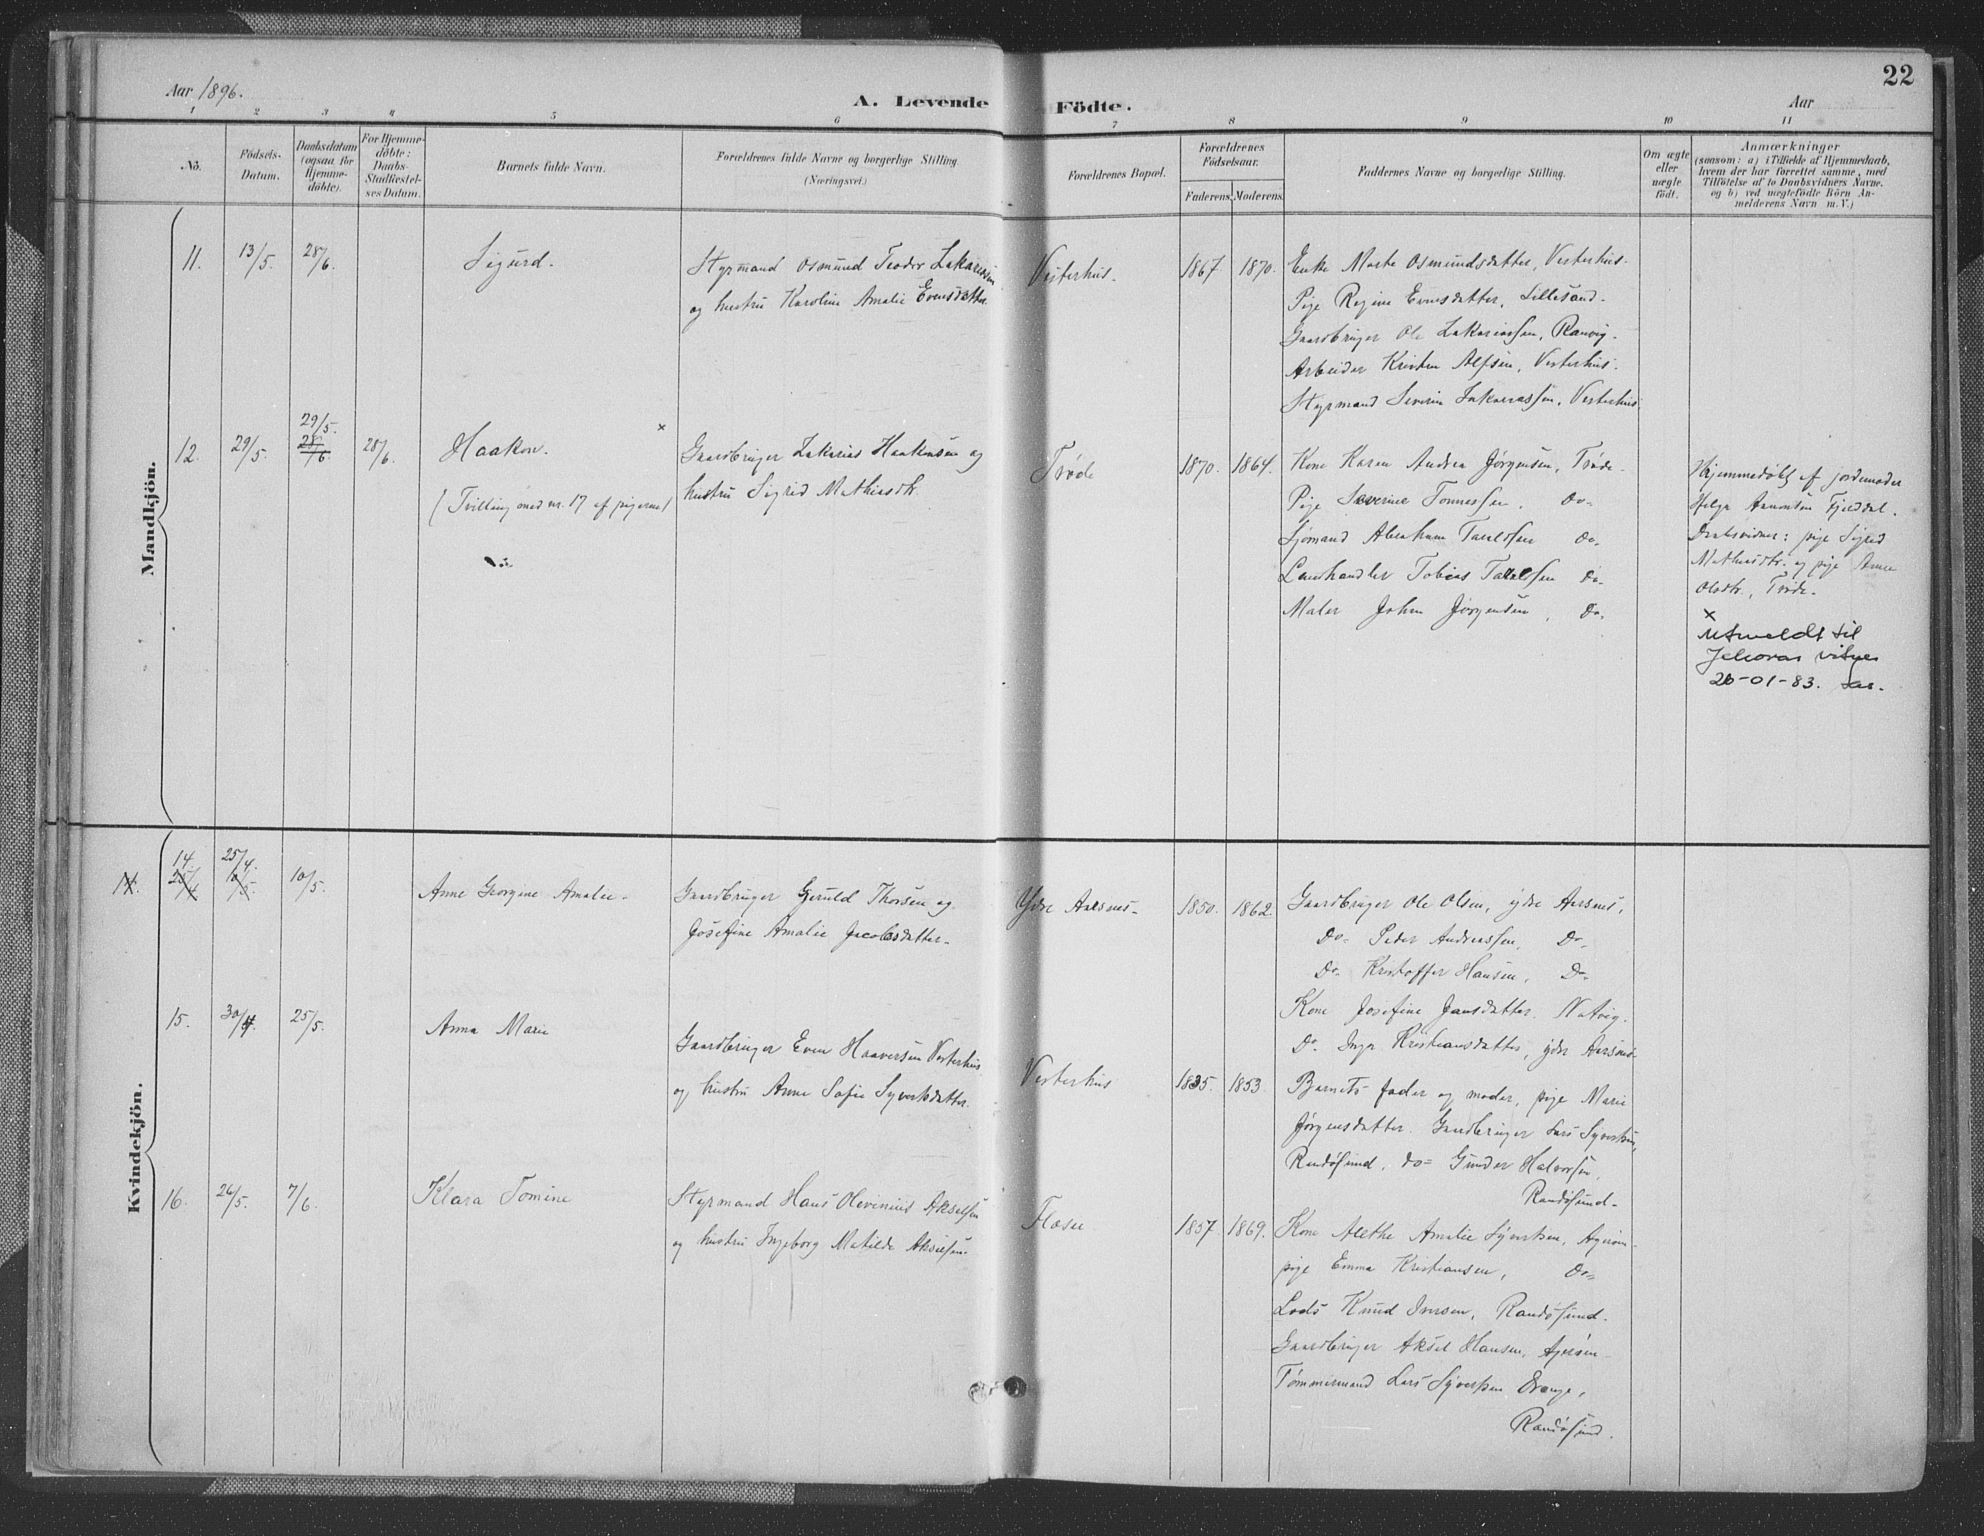 22
Aar 1896.
A. Levende Födte.
Aar
1 2 3 4 5 6 7 8 9 10 11
No.
Födsels-
Datum.
Daabsdatum
(ogsaa for
Hjemme-
døbte).
For Hjemme-
døbte:
Daabs-
Stadfæstel-
ses Datum.
Barnets fulde Navn.
Forældrenes fulde Navne og borgerlige Stilling
(Næringsvei.)
Forældrenes Bopæl.
Forældrenes
Födselsaar.
Faderens. Moderens.
Faddernes Navne og borgerlige Stilling.
Om ægte
eller
uægte
født.
Anmærkninger
(saasom: a) i Tilfælde af Hjemmedaab,
hvem der har forrettet samme, med
Tilføielse af to Daabsvidners Navne.
og b) ved uægtefødte Börn An-
melderens Navn m. V.)
Mandkjön.
11. 13/5. 28/6. Sigurd.
Styrmand Osmund Teodor Zakariassen
og hustru Karoline Amalie Evensdatter.
Vesterhus. 1867. 1870.
Enke Marte Osmundsdatter, Vesterhus.
Pige Regine Evensdatter, Lillesand.
Gaardbruger Ole Zakariassen, Ranvig.
Arbeider Kristen Alfsen, Vesterhus.
Styrmand Severin Zakariassen, Vesterhus.
12. 29/5. 29/5. 28/6 28/6. Haakon.
(Tvilling med nr. 17 af pigerne)
×
Gaardbruger Zakarias Haakensen og
hustru Sigrid Mathiasdtr.
Trøde 1870. 1864.
Kone Karen Andrea Jørgensen, Trøde.
Pige Severine Tønnessen, Do-
Sjømand Abraham Tarelssen Do-
Landhandler Tobias Tarelssen Do-
Maler Johan Jørgensen, Do-
Hjemmedøbt af jordemoder
Helga Aanonsen Fjelddal.
Daabsvidner: pige Sigrid
Mathiasdtr. og pige Anne
Olsdtr., Trøde.
×
Utmeldt til
Jehovas vitner
26-01-83.
Kvindekjön.
14. 14. 25/4 25/4. 10/5. 10/5.
Anne Georgine Amalie.
Gaardbruger Gjeruld Thorsen og
Josefine Amalie Jacobsdatter.
Ydre Aalsnes. 1850. 1862.
Gaardbruger Ole Olsen, ydre Aarsnes,
Do- Peder Andreassen, Do-
Do- Kristoffer Hansen, Do-
Kone Josefine Jansdatter, Natvig.
Do. Inger Kristiansdatter, ydre Aarsnes.
15. 30/4. 25/5. Anna Marie
Gaardbruger Even Haaversen Vesterhus
og hustru Anne Sofie Syvertsdatter.
Vesterhus 1835. 1853.
Barnets fader og moder, pige Marie
Jørgensdatter. Gaardbruger Lars Syvertsen,
Randøsund, Do= Gunder Halvorsen,
Randøsund.
16. 26/5. 7/6. Klara Tomine
Styrmand Hans Olevinius Akselsen
og hustru Ingeborg Matilde Akselsen.
Flosee 1857. 1869.
Kone Alethe Amalie Syvertsen,
pige Emma Kristiansen, Do=
Lods Knud Iversen, Randøsund.
Gaardbruger Aksel Hansen,
Tømmermand Lars Syvertsen Drange,
Randøsund.